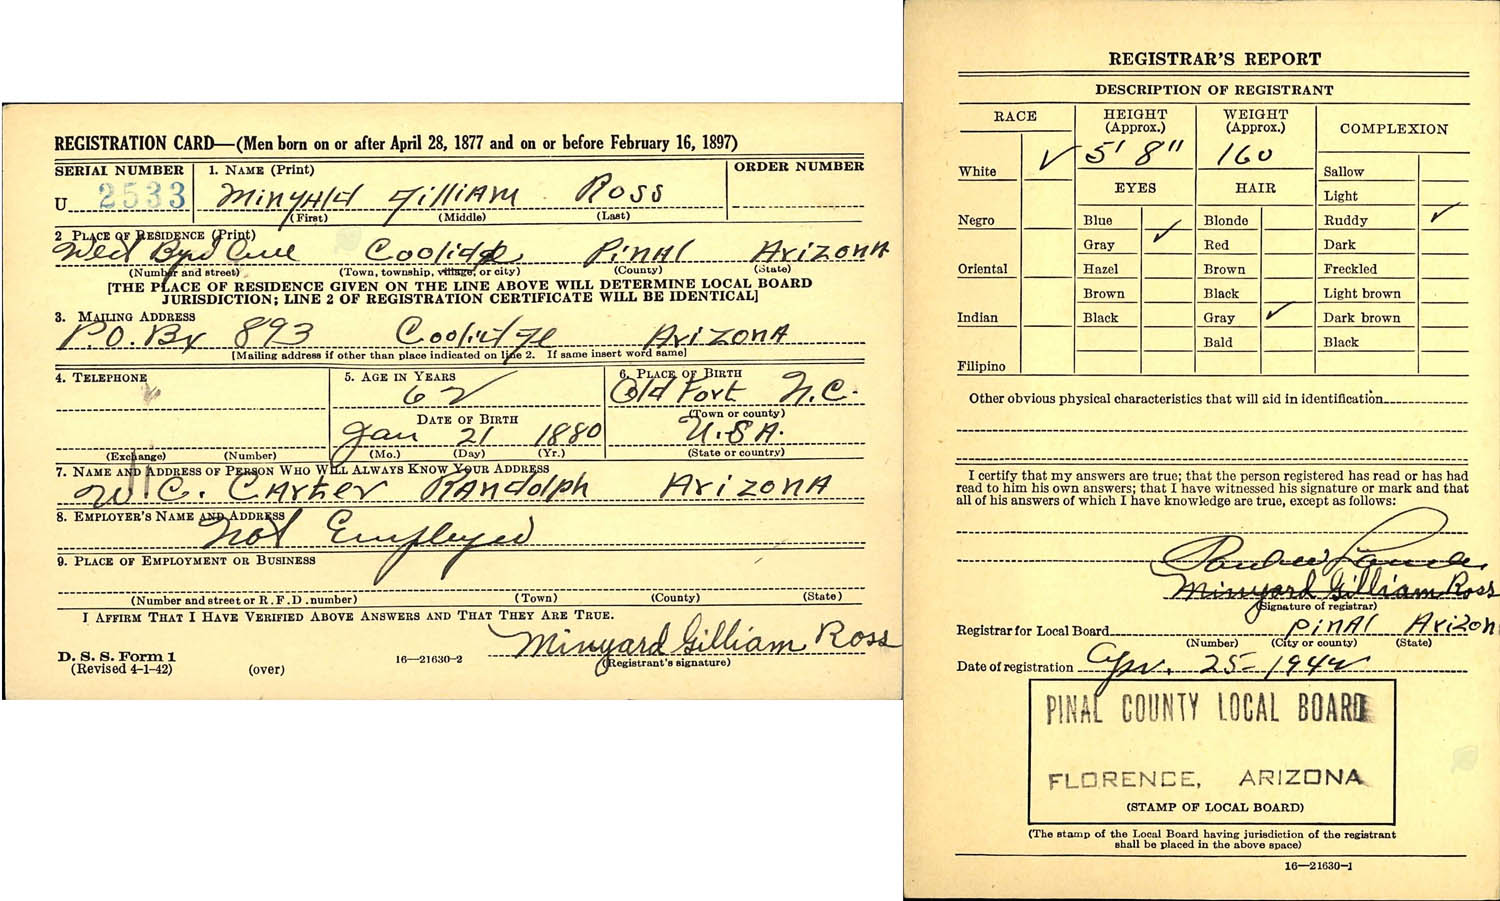 REGISTRATION CARD—(Men born on or after April 28, 1877 and on or before February 16, 1897)
SERIAL NUMBER
1. NAME (Print)
ORDER NUMBER
U 2533
Minyard Gilliam Ross
(First) (Middle) (Last)
2 PLACE OF RESIDENCE (Print)
Coolidge Pinal Arizona
(Number and street) (Town, township, village, or city) (County) (State)
[THE PLACE OF RESIDENCE GIVEN ON THE LINE ABOVE WILL DETERMINE LOCAL BOARD
JURISDICTION; LINE 2 OF REGISTRATION CERTIFICATE WILL BE IDENTICAL]
3. MAILING ADDRESS
P.O. Bx 893 Coolidge Arizona
[Mailing address if other than place indicated on line 2. If same insert word same]
4. TELEPHONE
5. AGE IN YEARS
6. PLACE OF BIRTH
62
Old Fort N.C.
DATE OF BIRTH
(Town or county)
Jan 21 1880
U.S.A.
(Exchange) (Number)
(Mo.) (Day) (Yr.)
(State or country)
7. NAME AND ADDRESS OF PERSON WHO WILL ALWAYS KNOW YOUR ADDRESS
W.C. Carter Randolph Arizona
8. EMPLOYER'S NAME AND ADDRESS
Not Employed
9. PLACE OF EMPLOYMENT OR BUSINESS
(Number and street or R. F. D. number) (Town) (County) (State)
I AFFIRM THAT I HAVE VERIFIED ABOVE ANSWERS AND THAT THEY ARE TRUE.
Minyard Gilliam Ross
D. S. S. Form 1
(Revised 4-1-42)
(over)
16—21630-2
(Registrant's signature)
REGISTRAR'S REPORT
DESCRIPTION OF REGISTRANT
RACE
HEIGHT
(Approx.)
WEIGHT
(Approx.)
COMPLEXION
White ✓
5' 8"
160
Sallow
EYES
HAIR
Light
Negro
Blue
Blonde
Ruddy ✓
Gray ✓
Red
Dark
Oriental
Hazel
Brown
Freckled
Brown
Black
Light brown
Indian
Black
Gray ✓
Dark brown
Bald
Black
Filipino
Other obvious physical characteristics that will aid in identification
I certify that my answers are true; that the person registered has read or has had
read to him his own answers; that I have witnessed his signature or mark and that
all of his answers of which I have knowledge are true, except as follows:
Minyard Gilliam Ross
(Signature of registrar)
Registrar for Local Board Pinal Arizon
(Number) (City or county) (State)
Date of registration Apr. 25-1942
PINAL COUNTY LOCAL BOARD
FLORENCE, ARIZONA
(STAMP OF LOCAL BOARD)
(The stamp of the Local Board having jurisdiction of the registrant
shall be placed in the above space)
16—21630-1